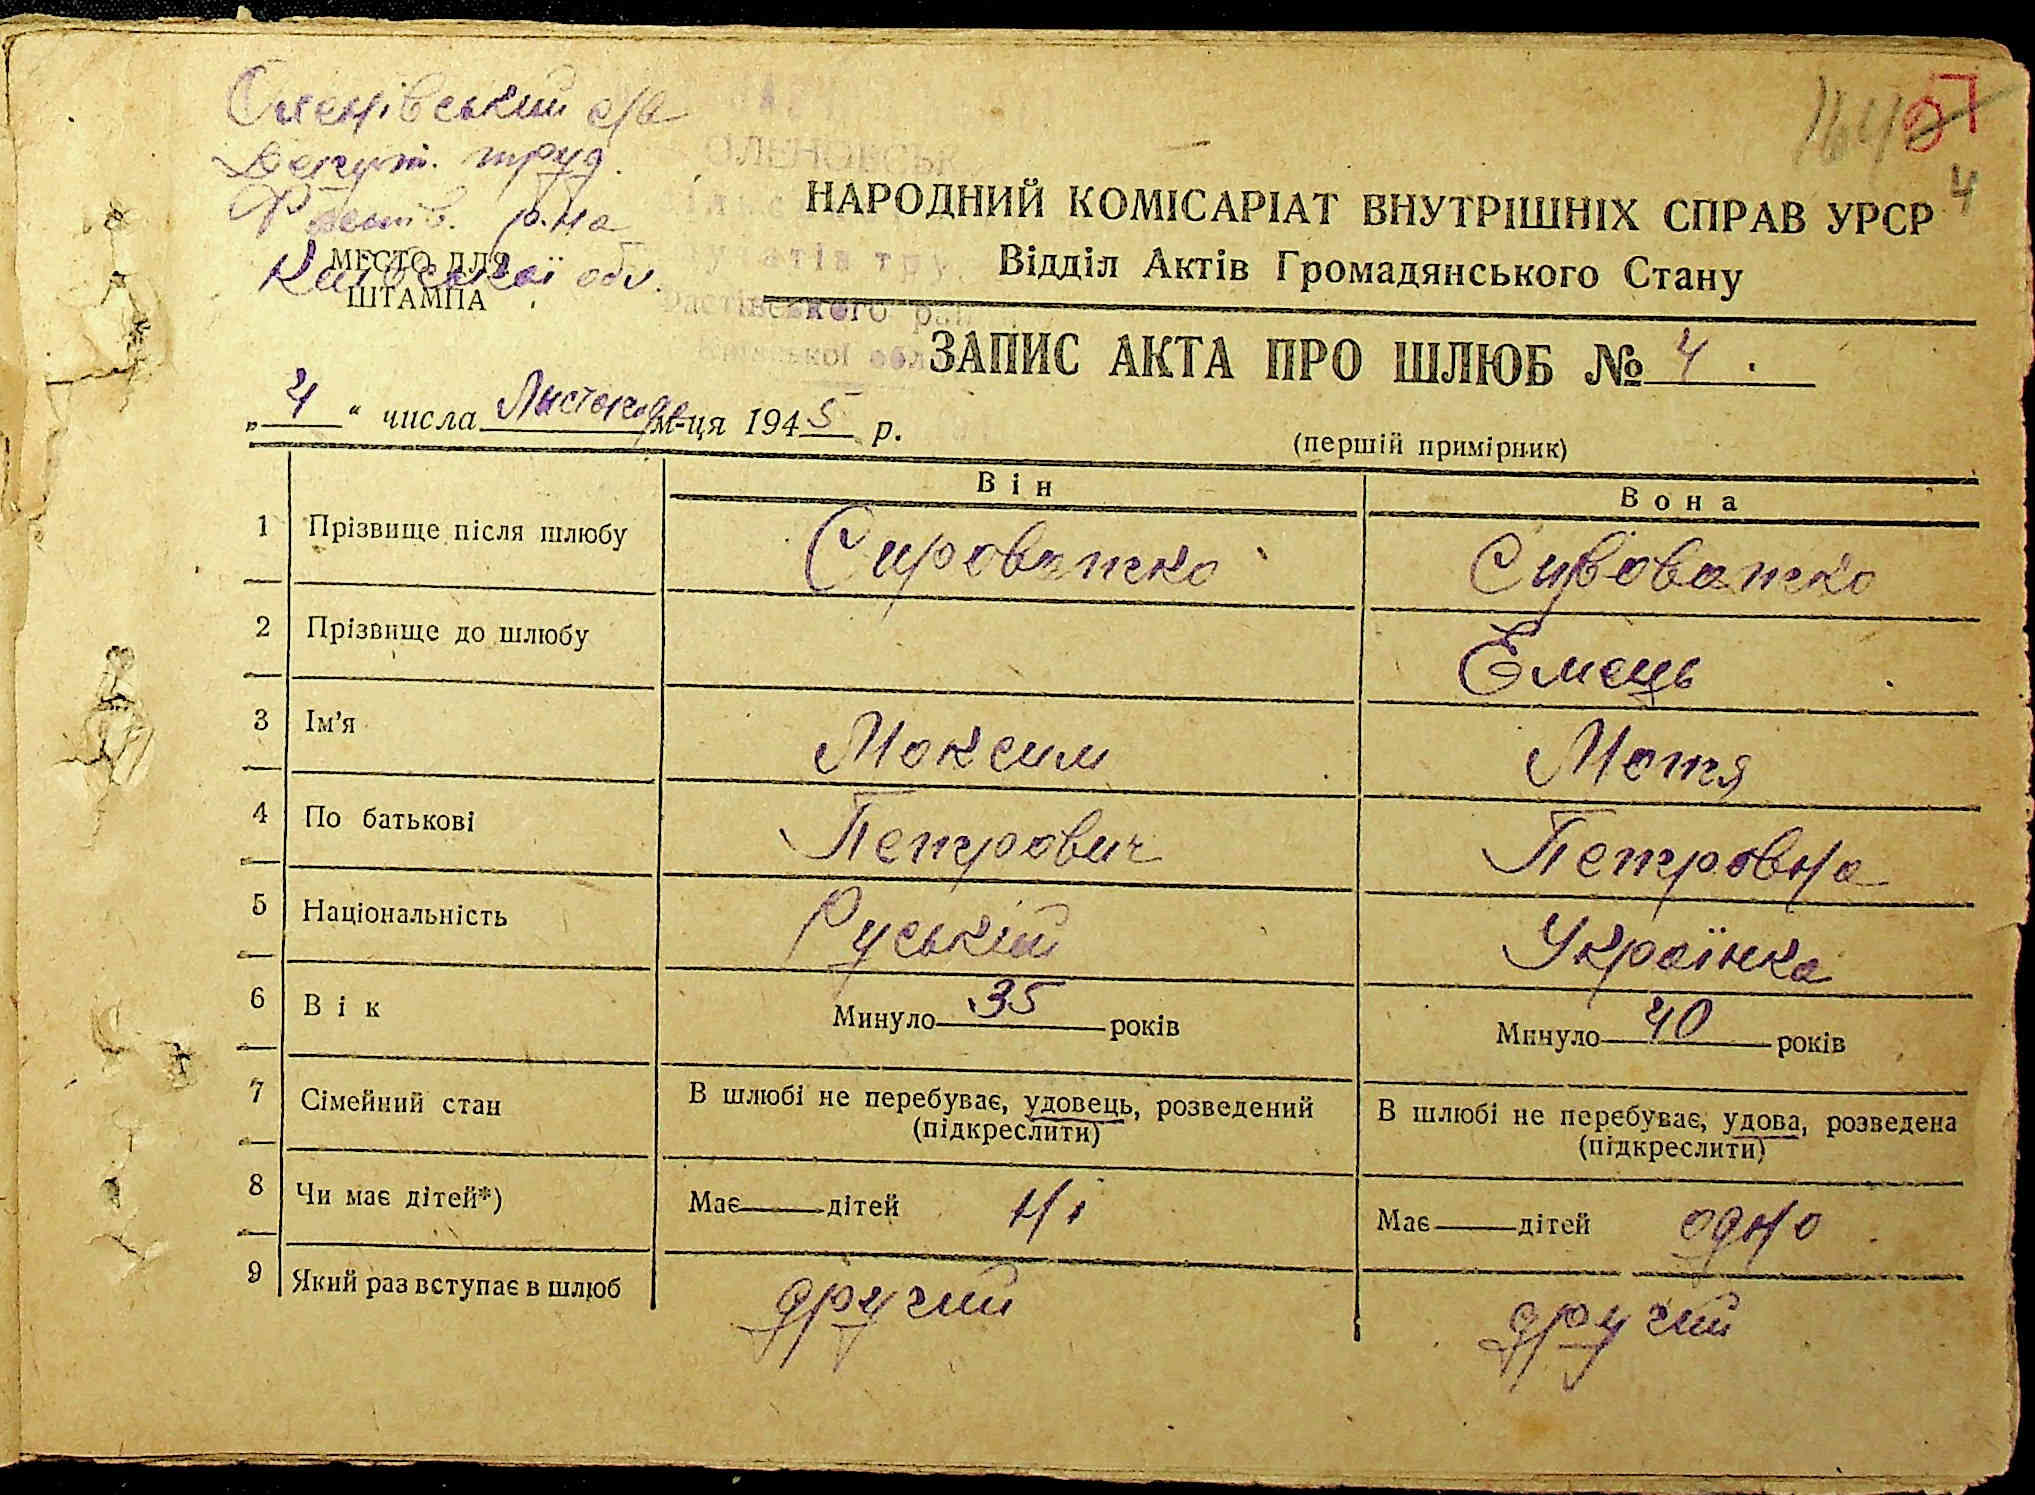 Оленівський с/в
Депут. труд.
Фастів. р-на
Київської обл.
МЕСТО ДЛЯ
ШТАМПА
ОЛЕНОВСЬК
Фастівського рай
Київської обл
4
НАРОДНИЙ КОМІСАРІАТ ВНУТРІШНІХ СПРАВ УРСР
Відділ Актів Громадянського Стану
ЗАПИС АКТА ПРО ШЛЮБ № 4
„ 4 “ числа Листопада м-ця 1945 р.
(першій примірник)
Він Вона
1 Прізвище після шлюбу Сироватко Сивоватко
2 Прізвище до шлюбу Ємець
3 Ім’я Максим Мотя
4 По батькові Петрович Петровна
5 Національність Руський Українка
6 Вік Минуло 35 років Минуло 40 років
7 Сімейний стан В шлюбі не перебуває, удовець, розведений (підкреслити) В шлюбі не перебуває, удова, розведена (підкреслити)
8 Чи має дітей*) Має дітей Ні Має дітей одно
9 Який раз вступає в шлюб другий другий